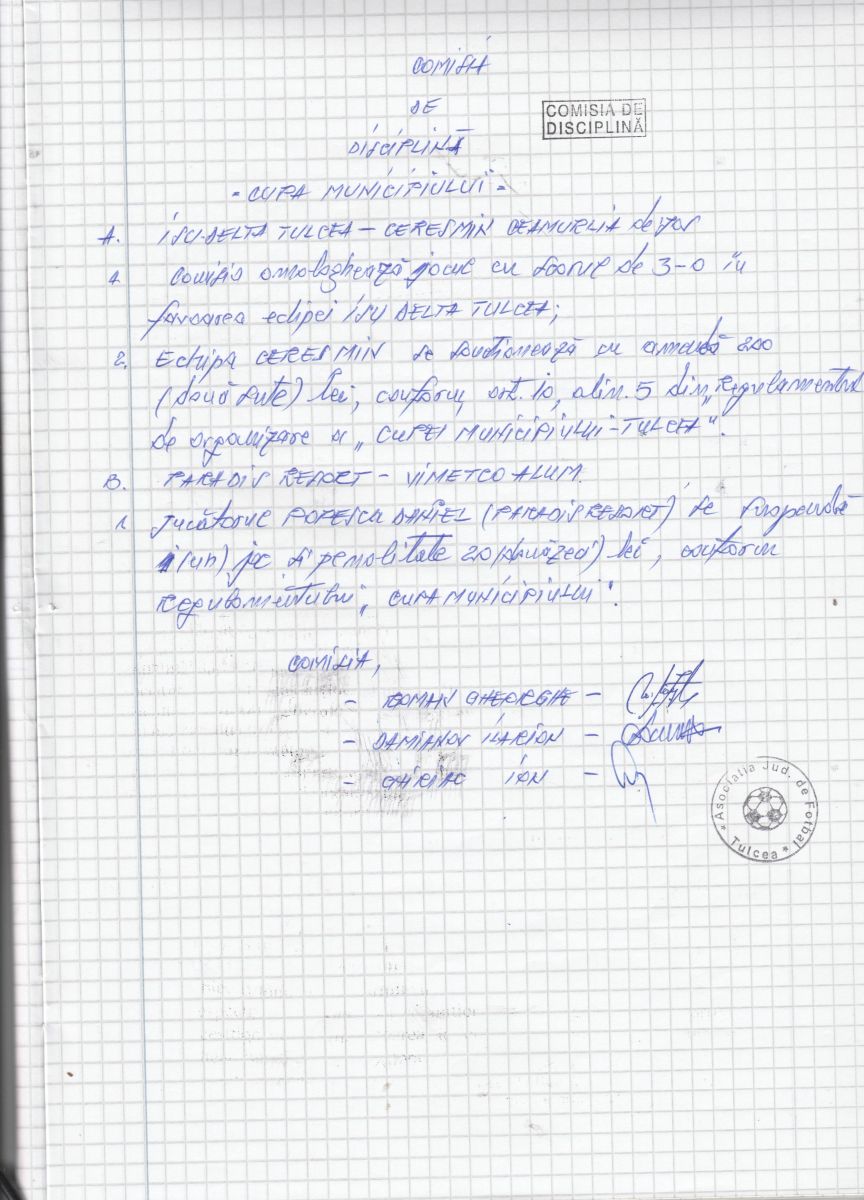 COMISIA
DE
COMISIA DE
DISCIPLINĂ
DISCIPLINĂ
"CUPA MUNICIPIULUI"
A. ISU DELTA TULCEA – CERESMIN CEAMURLIA de jos
1. Comisia omologhează jocul cu scorul de 3-0 în
favoarea echipei ISU DELTA TULCEA;
2. Echipa CERESMIN se sancționează cu amendă 200
(două sute) lei, conform, art. 10, alin. 5 din „Regulamentul
de organizare a „CUPEI MUNICIPIULUI-TULCEA".
B. PARADIS RESORT – VIMETCO ALUM.
1. Jucătorul POPESCU DANIEL (PARADIS RESORT) se suspendă
1(un) joc si penalitate 20(douăzeci) lei, conform
Regulamentului „CUPA MUNICIPIULUI".
COMISIA,
– ROMAN GHEORGHE –
– DAMIANOV ILARION –
– CHIRIAC ION –
*Asociatia Jud. de Fotbal
Tulcea*